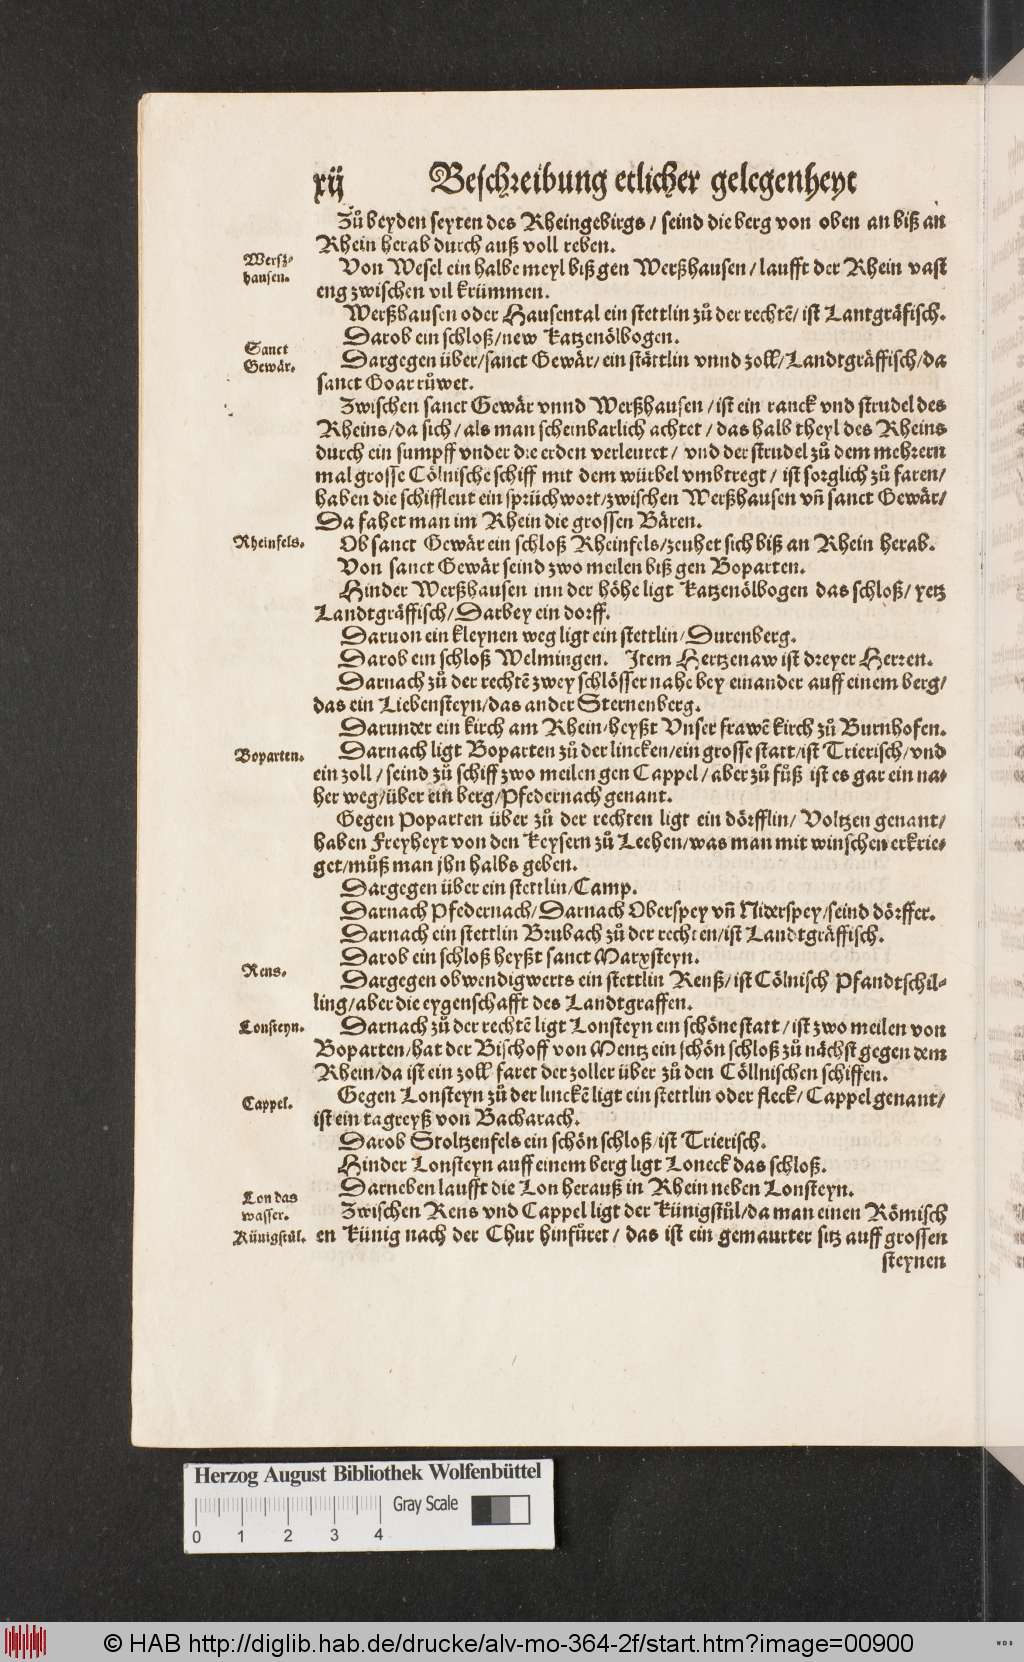 xij Beschreibung etlicher gelegenheyt
Zů beyden seyten des Rheingebirgs / seind die berg von oben an biß an
Rhein herab durch auß voll reben.
Werßhausen.
Von Wesel ein halbe meyl biß gen Werßhausen / laufft der Rhein vast
eng zwischen vil krümmen.
Werßhausen oder Hausental ein stettlin zů der rechtē / ist Lantgräfisch.
Darob ein schloß / new Katzenölbogen.
Sanct
Gewär.
Dargegen über / sanct Gewär / ein stättlin vnnd zoll / Landtgräffisch / da
sanct Goar růwet.
Zwischen sanct Gewär vnnd Werßhausen / ist ein ranck vnd strudel des
Rheins / da sich / als man scheinbarlich achtet / das halb theyl des Rheins
durch ein sumpff vnder die erden verleuret / vnd der strudel zů dem mehrern
mal grosse Cölnische schiff mit dem würbel vmbtregt / ist sorglich zů faren /
haben die schiffleut ein sprüchwort / zwischen Werßhausen vñ sanct Gewär /
Da fahet man im Rhein die grossen Bären.
Rheinfels.
Ob sanct Gewär ein schloß Rheinfels / zeuhet sich biß an Rhein herab.
Von sanct Gewär seind zwo meilen biß gen Boparten.
Hinder Werßhausen inn der höhe ligt Katzenölbogen das schloß / yetz
Landtgräffisch / Darbey ein dorff.
Daruon ein kleynen weg ligt ein stettlin / Durenberg.
Darob ein schloß Welmingen. Item Hertzenaw ist dreyer Herren.
Darnach zů der rechtē zwey schlösser nahe bey einander auff einem berg /
das ein Liebensteyn / das ander Sternenberg.
Darunder ein kirch am Rhein / heyßt Vnser frawē kirch zů Burnhofen.
Boparten.
Darnach ligt Boparten zů der lincken / ein grosse statt / ist Trierisch / vnd
ein zoll / seind zů schiff zwo meilen gen Cappel / aber zů fůß ist es gar ein na⸗
her weg / über ein berg / Pfedernach genant.
Gegen Poparten über zů der rechten ligt ein dörfflin / Voltzen genant /
haben Freyheyt von den Keysern zů Leehen / was man mit winschen erkrie⸗
get / můß man jhn halbs geben.
Dargegen über ein stettlin / Camp.
Darnach Pfedernach / Darnach Oberspey vñ Niderspey / seind dörffer.
Darnach ein stettlin Brubach zů der rechten / ist Landtgräffisch.
Darob ein schloß heyßt sanct Marxsteyn.
Rens.
Dargegen obwendigwerts ein stettlin Renß / ist Cölnisch Pfandtschil⸗
ling / aber die eygenschafft des Landtgraffen.
Lonsteyn.
Darnach zů der rechtē ligt Lonsteyn ein schöne statt / ist zwo meilen von
Boparten / hat der Bischoff von Mentz ein schön schloß zů nächst gegen dem
Rhein / da ist ein zoll / faret der zoller über zů den Cöllnischen schiffen.
Cappel.
Gegen Lonsteyn zů der linckē ligt ein stettlin oder fleck / Cappel genant /
ist ein tagreyß von Bacharach.
Darob Stoltzenfels ein schön schloß / ist Trierisch.
Hinder Lonsteyn auff einem berg ligt Loneck das schloß.
Lon das
wasser.
Darneben laufft die Lon herauß in Rhein neben Lonsteyn.
Künigstůl.
Zwischen Rens vnd Cappel ligt der Künigstůl / da man einen Römisch
en Künig nach der Chur hinfůret / das ist ein gemaurter sitz auff grossen
steynen
Herzog August Bibliothek Wolfenbüttel
Gray Scale
0 1 2 3 4
© HAB http://diglib.hab.de/drucke/alv-mo-364-2f/start.htm?image=00900